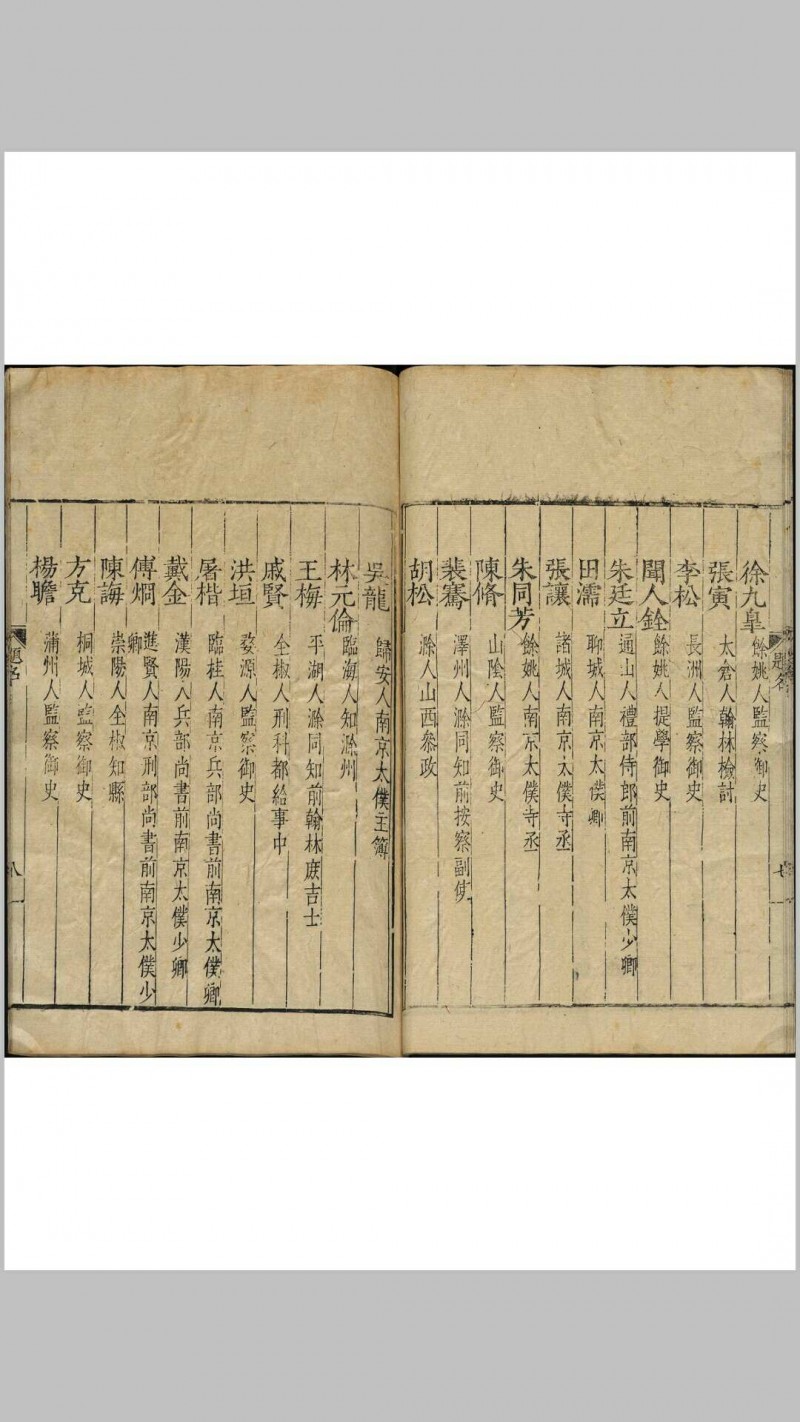 題名
七
徐九皐 餘姚人監察御史
張寅 太倉人翰林檢討
李松 長洲人監察御史
聞人銓 餘姚人提學御史
朱廷立 通山人禮部侍郎前南京太僕少卿
田濡 聊城人南京太僕卿
張讓 諸城人南京太僕寺丞
朱同芳 餘姚人南京太僕寺丞
陳脩 山陰人監察御史
裴騫 澤州人滁同知前按察副使
胡松 滁人山西叅政
吳龍 歸安人南京太僕主簿
林元倫 臨海人知滁州
王梅 平湖人滁同知前翰林庶吉士
戚賢 全椒人刑科都給事中
洪垣 婺源人監察御史
屠楷 臨桂人南京兵部尚書前南京太僕卿
戴金 漢陽人兵部尚書前南京太僕少卿
傅烱 進賢人南京刑部尚書前南京太僕少
卿
陳誨 崇陽人全椒知縣
方克 桐城人監察御史
楊瞻 蒲州人監察御史
題名
八